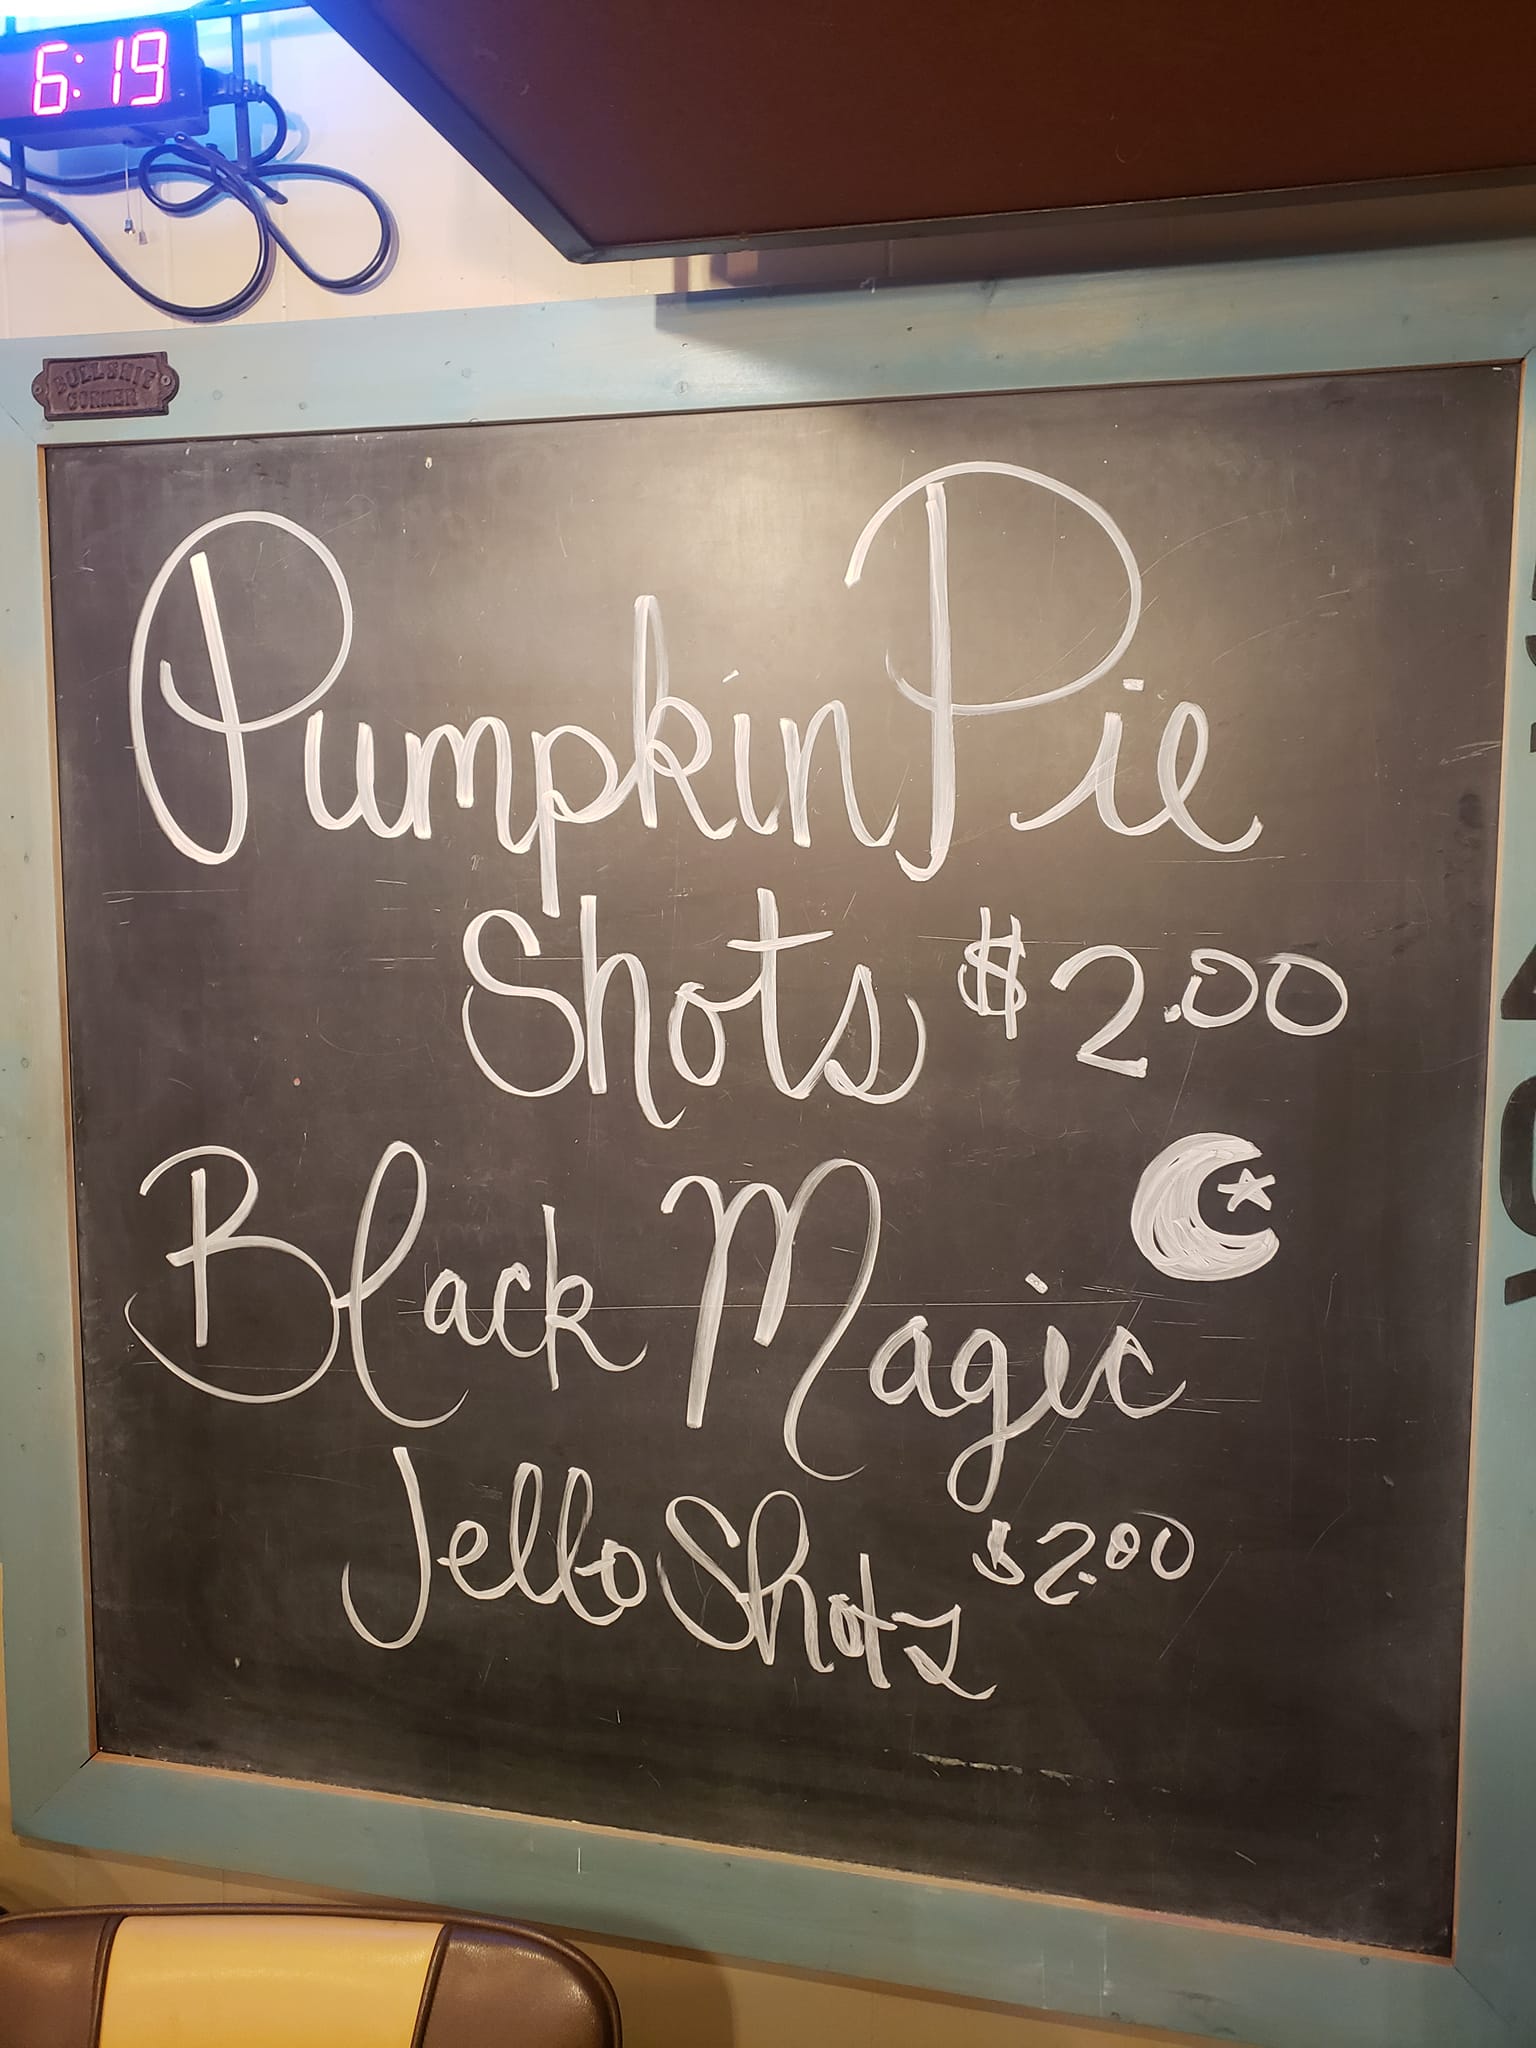 6:19
BULLSHIT
CORNER
Pumpkin Pie
Shots $2.00
Black Magic
Jello Shotz $2.00